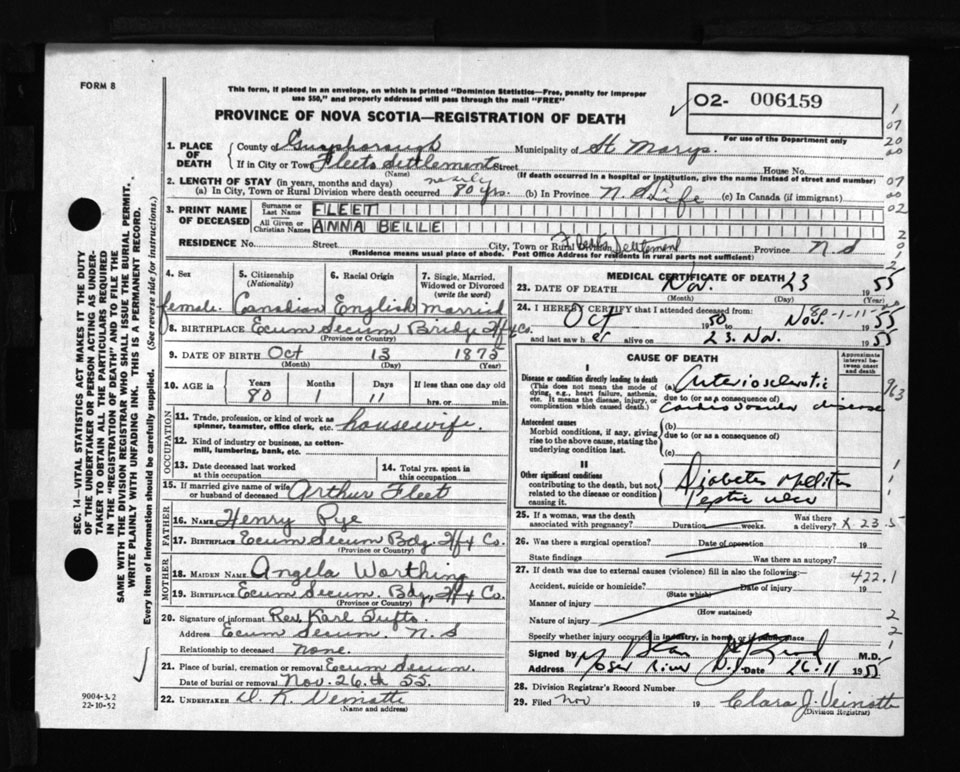 FORM 8
This form, if placed in an envelope, on which is printed "Dominion Statistics—Free, penalty for improper
use $50," and properly addressed will pass through the mail "FREE"
02- 006159
For use of the Department only
PROVINCE OF NOVA SCOTIA—REGISTRATION OF DEATH
1. PLACE OF DEATH
County of Guysborough Municipality of St Marys.
If in City or Town Fleets Settlement Street House No.
(Name) (If death occurred in a hospital or institution, give the name instead of street and number)
2. LENGTH OF STAY (in years, months and days)
(a) In City, Town or Rural Division where death occurred nearly 80 yrs. (b) In Province N. S Life (c) In Canada (if immigrant)
3. PRINT NAME OF DECEASED
Surname or Last Name FLEET
All Given or Christian Names ANNA BELLE
RESIDENCE No. Street City, Town or Rural Division Fleets Settlement Province N. S
(Residence means usual place of abode. Post Office Address for residents in rural parts not sufficient)
4. Sex female.
5. Citizenship (Nationality) Canadian
6. Racial Origin English
7. Single, Married, Widowed or Divorced (write the word) married
8. BIRTHPLACE Ecum Secum Bridge Hfx Co.
(Province or Country)
9. DATE OF BIRTH Oct 13 1875
(Month) (Day) (Year)
10. AGE in Years Months Days If less than one day old
80 1 11 hrs. or min.
OCCUPATION
11. Trade, profession, or kind of work as spinner, teamster, office clerk, etc. housewife.
12. Kind of industry or business, as cotton-mill, lumbering, bank, etc.
13. Date deceased last worked at this occupation
14. Total yrs. spent in this occupation
15. If married give name of wife or husband of deceased Arthur Fleet
FATHER
16. NAME Henry Pye
17. BIRTHPLACE Ecum Secum Bdg. Hfx Co.
(Province or Country)
MOTHER
18. MAIDEN NAME Angela Worthing
19. BIRTHPLACE Ecum Secum. Bdg, Hfx Co.
(Province or Country)
20. Signature of informant Rev. Karl Tufts.
Address Ecum Secum. N. S
Relationship to deceased none.
21. Place of burial, cremation or removal Ecum Secum.
Date of burial or removal Nov. 26th 55.
22. UNDERTAKER D. K. Veinotte
(Name and address)
MEDICAL CERTIFICATE OF DEATH
23. DATE OF DEATH Nov. 23 1955
(Month) (Day) (Year)
24. I HEREBY CERTIFY that I attended deceased from:
Oct 1950 to Nov. 1955
and last saw her alive on 23. Nov. 1955
CAUSE OF DEATH
Approximate interval between onset and death
I
Disease or condition directly leading to death
(This does not mean the mode of dying, e.g., heart failure, asthenia, etc. It means the disease, injury, or complication which caused death.)
(a) Arteriosclerotic
due to (or as a consequence of)
Cardiovascular disease
Antecedent causes
Morbid conditions, if any, giving rise to the above cause, stating the underlying condition last.
(b)
due to (or as a consequence of)
(c)
II
Other significant conditions
contributing to the death, but not related to the disease or condition causing it.
Diabetes Mellitus
Peptic ulcer
25. If a woman, was the death associated with pregnancy? Duration weeks. Was there a delivery?
26. Was there a surgical operation? Date of operation 19
State findings Was there an autopsy?
27. If death was due to external causes (violence) fill in also the following:
422.1
Accident, suicide or homicide? Date of injury 19
(State which)
Manner of injury
(How sustained)
Nature of injury
Specify whether injury occurred in industry, in home, or in public place
Signed by M.D.
Address Moser River N.S Date 26-11 1955
28. Division Registrar's Record Number
29. Filed Nov 19 Clara J. Veinotte
(Division Registrar)
SEC. 14—VITAL STATISTICS ACT MAKES IT THE DUTY
OF THE UNDERTAKER OR PERSON ACTING AS UNDER-
TAKER TO OBTAIN ALL THE PARTICULARS REQUIRED
IN THE "REGISTRATION OF DEATH" AND TO FILE THE
SAME WITH THE DIVISION REGISTRAR WHO SHALL ISSUE THE BURIAL PERMIT.
WRITE PLAINLY WITH UNFADING INK. THIS IS A PERMANENT RECORD.
Every item of information should be carefully supplied. (See reverse side for instructions.)
9004-3.2
22-10-52